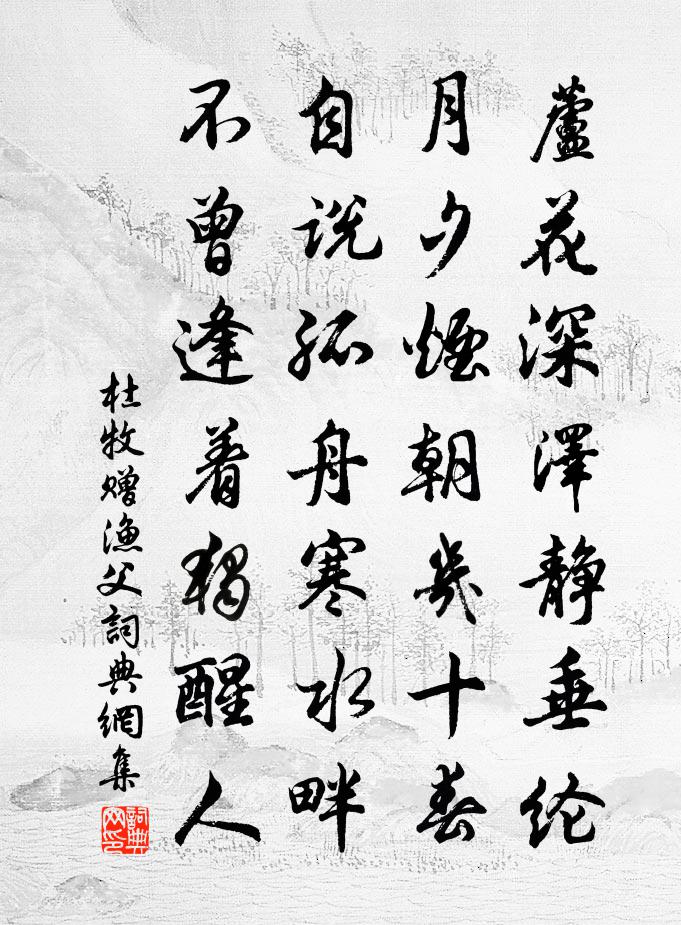 蘆花深澤靜垂纶
月夕煙朝幾十春
自説孤舟寒水畔
不曾逢着獨醒人
杜牧赠漁父詞典網集
詞典
网印